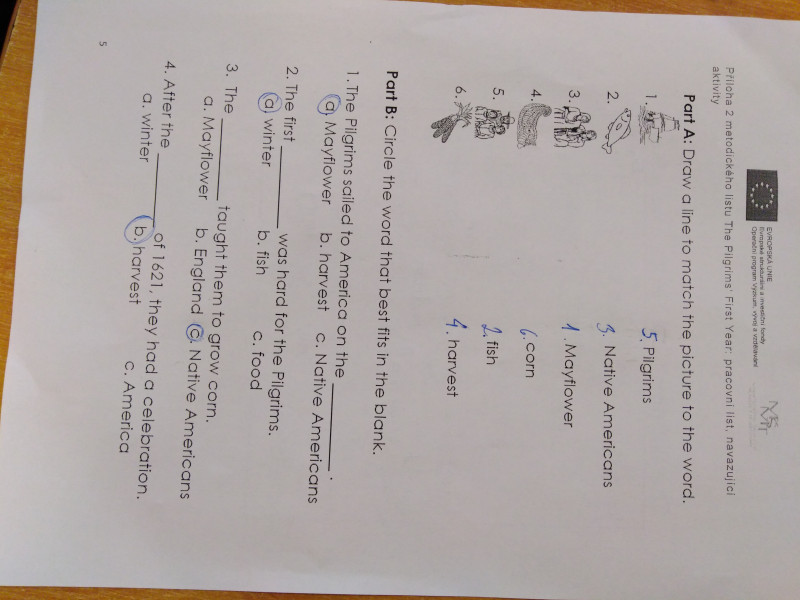 EVROPSKÁ UNIE
Evropské strukturální a investiční fondy
Operační program Výzkum, vývoj a vzdělávání
Příloha 2 metodického listu The Pilgrims' First Year: pracovní list, navazující
aktivity
Part A: Draw a line to match the picture to the word.
1. 5. Pilgrims
2. 3. Native Americans
3. 1. Mayflower
4. 6. corn
5. 2. fish
6. 4. harvest
Part B: Circle the word that best fits in the blank.
1. The Pilgrims sailed to America on the ________.
a. Mayflower b. harvest c. Native Americans
2. The first ________ was hard for the Pilgrims.
a. winter b. fish c. food
3. The ________ taught them to grow corn.
a. Mayflower b. England c. Native Americans
4. After the ________ of 1621, they had a celebration.
a. winter b. harvest c. America
5